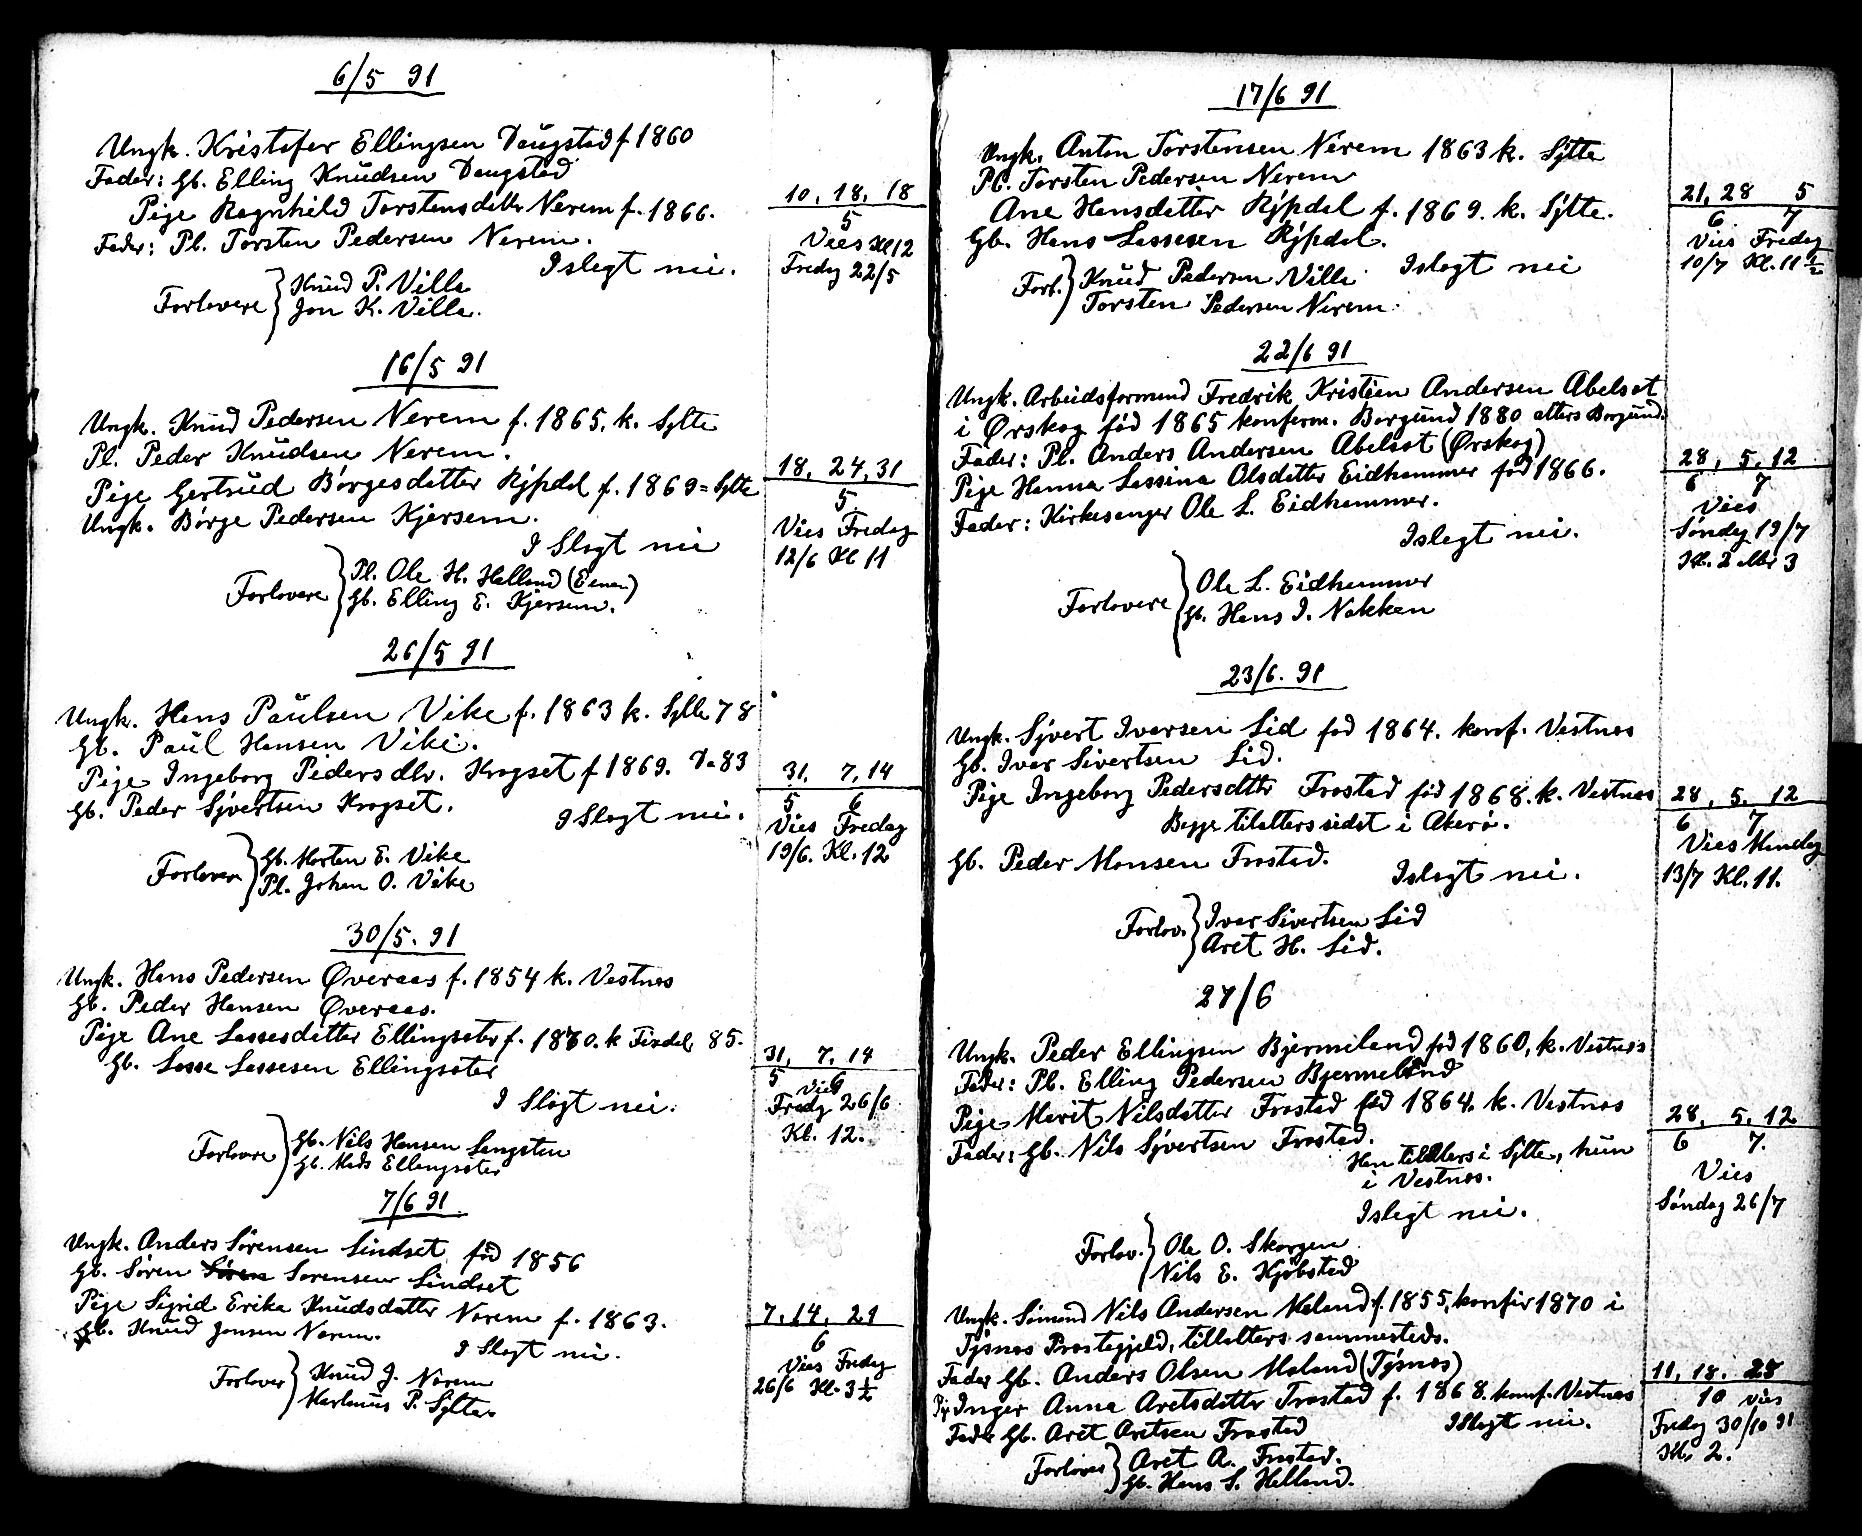 6/5 91
Ungk. Kristofer Ellingsen Daugstad f 1860
Fader: Gb. Elling Knudsen Daugstad
Pige Ragnhild Torstensdattr Nerem f. 1866.
10, 18, 18
5
Fader: Pl. Torsten Pedersen Nerem.
Vies Kl 12
Islegt nei.
Fredag 22/5
Forlovere } Knud P. Villa
Jon K. Villa.
16/5 91
Ungk. Knud Pedersen Nerem f. 1865, k. Sylte
Pl. Peder Knudsen Nerem.
Pige Gertrud Børgesdatter Rypdal f. 1869 = Sylte
18, 24, 31
5
Ungk. Børge Pedersen Kjersem.
Vies Fredag
I Slegt nei
12/6 Kl 11
Forlovere } Pl. Ole H. Helland (Eenen)
Gb. Elling E. Kjersem.
26/5 91
Ungk. Hans Paulsen Vike f. 1863 k. Sylte 78
Gb. Paul Hansen Vike.
Pige Ingeborg Pedersdtr. Krogset f 1869. Do 83
31, 7, 14
5 6
Gb. Peder Sjvertsen Krogset.
I Slegt nei.
Vies Fredag
19/6. Kl. 12
Forlover } Gb. Morten E. Vike
Pl. Johan O. Vike
30/5. 91
Ungk. Hans Pedersen Øveraas f. 1854 k. Vestnes
Gb. Peder Hansen Øveraas.
Pige Ane Lassesdatter Ellingsæter f. 1870. k Fixdal 85.
31, 7, 14
5 6
Gb. Lasse Lassesen Ellingsæter
Vies
I Slegt nei.
Fredg 26/6
Kl. 12.
Forlovere } Gb. Nils Hansen Langsten
Gb. Mads Ellingsæter
7/6 91
Ungk. Anders Sørensen Lindset fød 1856
Gb. Søren Søren Sørensen Lindset
Pige Sigrid Erika Knudsdatter Nerem f. 1863.
7, 14, 21
6
Gb. Knud Jonsen Nerem.
I Slegt nei.
Vies Fredag
26/6 Kl. 3½
Forlover } Knud J. Nerem
Martinus P. Sylte.
17/6 91
Ungk. Anton Torstensen Nerem 1863 k. Sylte
Pl. Torsten Pedersen Nerem
Ane Hansdatter Rypdal f. 1869. k. Sylte.
21, 28 5
6 7
Gb. Hans Lassesen Rypdal.
Vies Fredag
Islegt nei
10/7 Kl. 11½
Forl. } Knud Pedersen Villa
Torsten Pedersen Nerem.
22/6 91
Ungk. Arbeidsformand Fredrik Kristian Andersen Abelset
i Ørskog fød 1865 konferm. Borgund 1880 atters Borgund.
Fader: Pl. Anders Andersen Abelset (Ørskog)
Pige Hanna Lassina Olsdatter Eidhammer fød 1866.
28, 5, 12
6 7
Fader: Kirkesanger Ole L. Eidhammer.
Vies
Islegt nei.
Søndag 19/7
Kl. 2 eller 3
Forlovere } Ole L. Eidhammer
Gb. Hans I. Nakken
23/6. 91
Ungk. Sjvert Iversen Lid fød 1864. konf. Vestnes
Gb. Iver Sivertsen Lid.
Pige Ingeborg Pedersdttr Frostad fød 1868. k. Vestnes
28, 5, 12
6 7
Begge tilatters sidst i Akerø.
Gb. Peder Monsen Frostad.
Vies Mandag
Islegt nei.
13/7 Kl. 11.
Forlov. } Iver Sivertsen Lid
Aret H. Lid.
27/6
Ungk. Peder Ellingsen Bjermeland fød 1860, k. Vestnes
Fader: Pl. Elling Pedersen Bjermeland
Pige Marit Nilsdatter Frostad fød 1864. k. Vestnes
28, 5, 12
6 7.
Fader: Gb. Nils Sjvertsen Frostad.
Han tilatters i Sylte, hun
i Vestnes.
Vies
Islegt nei.
Søndag 26/7
Forlov. } Ole O. Skorgen
Nils E. Kjøbstad
Ungk. Sømand Nils Andersen Meland f. 1855, konfir 1870 i
Tysnes Præstegjeld, tillatters sammesteds.
Fader Gb. Anders Olsen Meland (Tysnes)
11, 18. 28
10 vies
Pig Inger Anna Aretsdatter Frostad f. 1868. konf. Vestnes
Fader Gb. Aret Aretsen Frostad
Islegt nei.
Fredag 30/10 91
Kl. 2.
Forlover } Aret A. Frostad.
Gb. Hans S. Helland.